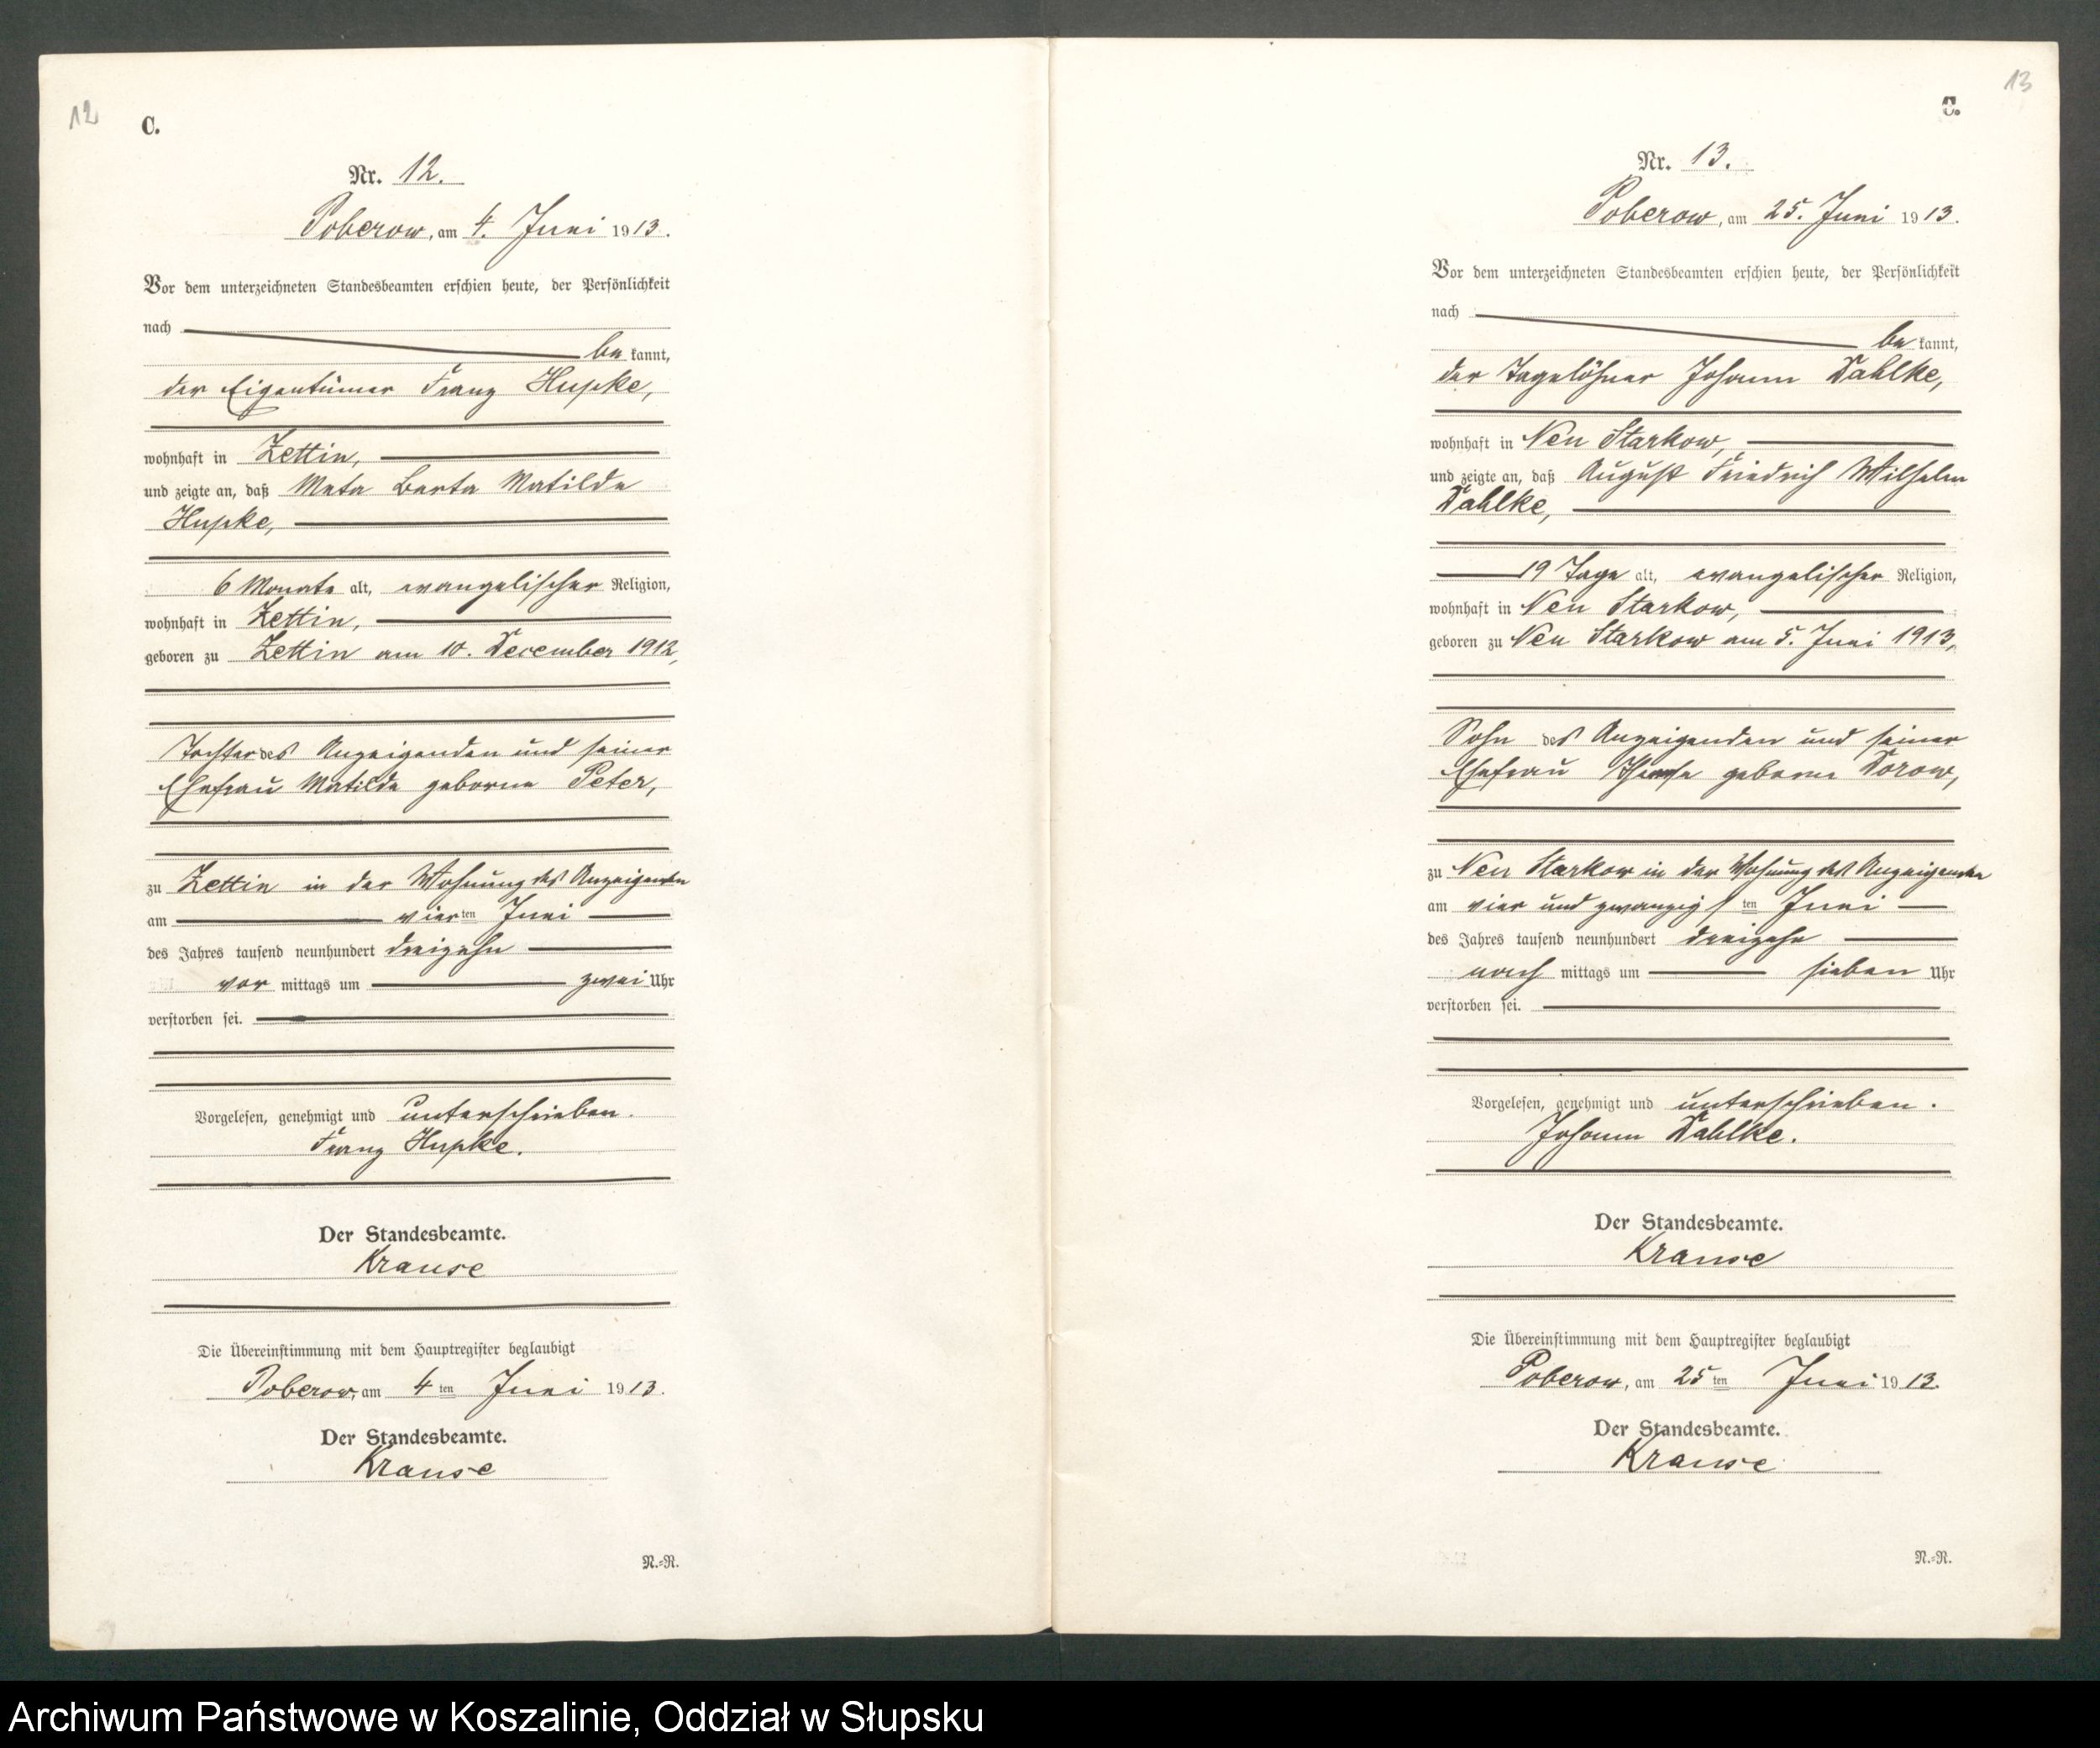 12
C.
Nr. 12.
Poberow, am 4. Juni 1913.
Vor dem unterzeichneten Standesbeamten erschien heute, der Persönlichkeit
nach
be kannt,
der Eigentümer Franz Hupke,
wohnhaft in Zettin,
und zeigte an, daß Meta Berta Matilde
Hupke,
6 Monate alt, evangelischer Religion,
wohnhaft in Zettin,
geboren zu Zettin am 10. Dezember 1912,
Tochter des Anzeigenden und seiner
Ehefrau Matilde geborne Peter,
zu Zettin in der Wohnung des Anzeigenden
am vierten Juni
des Jahres tausend neunhundert dreizehn
vor mittags um zwei Uhr
verstorben sei.
Vorgelesen, genehmigt und unterschrieben.
Franz Hupke.
Der Standesbeamte.
Krause
Die Übereinstimmung mit dem Hauptregister beglaubigt
Poberow, am 4 ten Juni 1913.
Der Standesbeamte.
Krause
N.=R.
13
C.
Nr. 13.
Poberow, am 25. Juni 1913.
Vor dem unterzeichneten Standesbeamten erschien heute, der Persönlichkeit
nach
be kannt,
der Tagelöhner Johann Dahlke,
wohnhaft in Neu Starkow,
und zeigte an, daß August Friedrich Wilhelm
Dahlke,
19 Tage alt, evangelischer Religion,
wohnhaft in Neu Starkow,
geboren zu Neu Starkow am 5. Juni 1913,
Sohn des Anzeigenden und seiner
Ehefrau geborne Dorow,
zu Neu Starkow in der Wohnung des Anzeigenden
am vier und zwanzigsten Juni
des Jahres tausend neunhundert dreizehn
nach mittags um sieben Uhr
verstorben sei.
Vorgelesen, genehmigt und unterschrieben.
Johann Dahlke.
Der Standesbeamte.
Krause
Die Übereinstimmung mit dem Hauptregister beglaubigt
Poberow, am 25 ten Juni 1913.
Der Standesbeamte.
Krause
N.=R.
Archiwum Państwowe w Koszalinie, Oddział w Słupsku